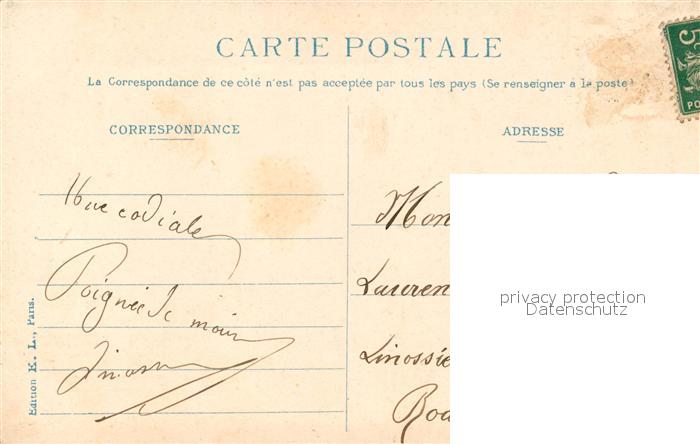 CARTE POSTALE
La Correspondance de ce côté n'est pas acceptée par tous les pays (Se renseigner à la poste)
CORRESPONDANCE
ADRESSE
5
PO
Une codiale
Poignée de main
Mon
Lauren
Linossie
Roa
privacy protection
Datenschutz
Edition E. L., Paris.